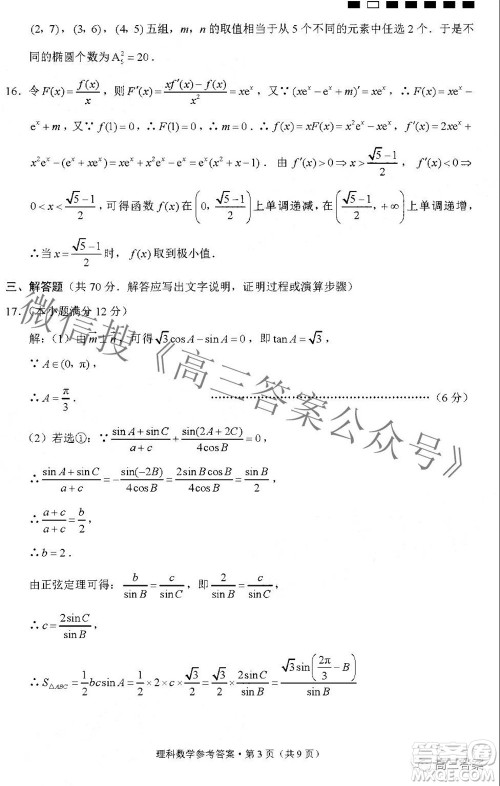 (2, 7), (3, 6), (4, 5) 五组, m, n 的取值相当于从 5 个不同的元素中任选 2 个. 于是不
同的椭圆个数为 A₅²=20.
16. 令 F(x)=f(x)/x, 则 F′(x)=(xf′(x)−f(x))/x²=xeˣ, 又∵(xeˣ−eˣ+m)′=xeˣ, ∴F(x)=xeˣ−
eˣ+m, 又∵f(1)=0, ∴F(1)=0, ∴m=0. ∴f(x)=xF(x)=x²eˣ−xeˣ, ∴f′(x)=2xeˣ+
x²eˣ−(eˣ+xeˣ)=x²eˣ+xeˣ−eˣ=eˣ(x²+x−1). 由 f′(x)>0⇒x>(√5−1)/2, f′(x)<0⇒
0<x<(√5−1)/2, 可得函数 f(x) 在(0, (√5−1)/2)上单调递减, 在((√5−1)/2, +∞)上单调递增,
∴当 x=(√5−1)/2 时, f(x) 取到极小值.
三、解答题(共 70 分. 解答应写出文字说明, 证明过程或演算步骤)
17. (本小题满分 12 分)
解:(1)由 m⊥n, 可得 √3cosA−sinA=0, 即 tanA=√3,
∵A∈(0, π),
∴A=π/3. ……………………………(6 分)
(2)若选①:∵(sinA+sinC)/(a+c)+sin(2A+2C)/(4cosB)=0,
∴(sinA+sinC)/(a+c)=−sin(−2B)/(4cosB)=2sinBcosB/(4cosB)=sinB/2,
∴(a+c)/(a+c)=b/2,
∴b=2.
由正弦定理可得:b/sinB=c/sinC, 即 2/sinB=c/sinC,
∴c=2sinC/sinB,
∴S△ABC=½bcsinA=½×2×c×√3/2=√3/2·2sinC/sinB=√3sin(2π/3−B)/sinB
理科数学参考答案·第 3 页(共 9 页)
微信搜《高三答案公众号》
高三答案